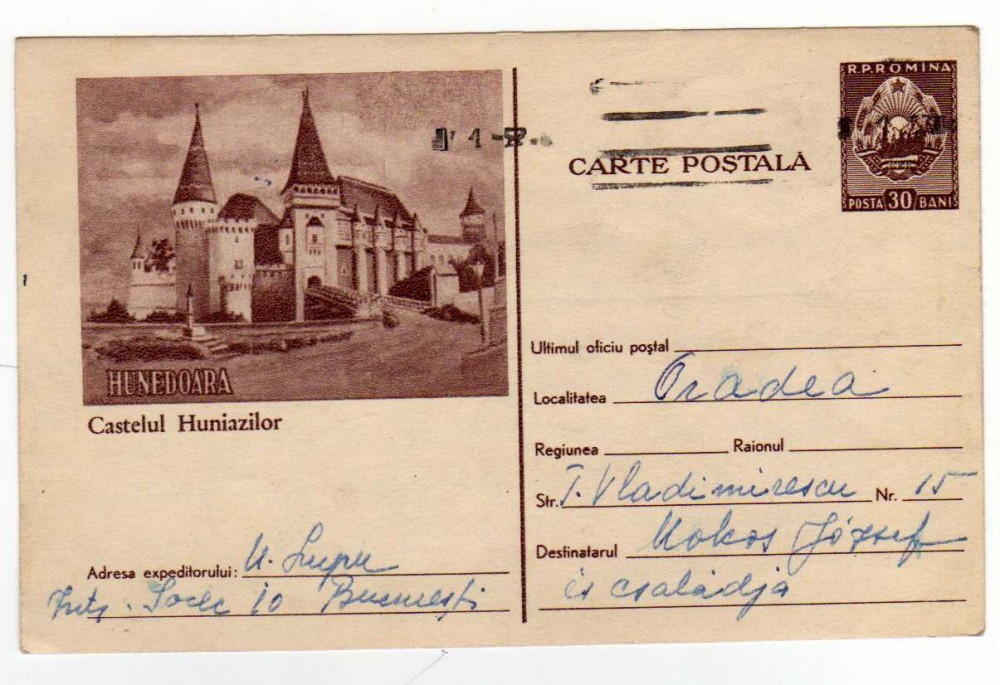 HUNEDOARA
Castelul Huniazilor
Adresa expeditorului: U. Lupu
10 București
CARTE POȘTALĂ
R.P. ROMINA
POSTA 30 BANI
Ultimul oficiu poștal
Localitatea Oradea
Regiunea Raionul
Str. T. Vladimirescu Nr. 15
Destinatarul Mokos József
és családja